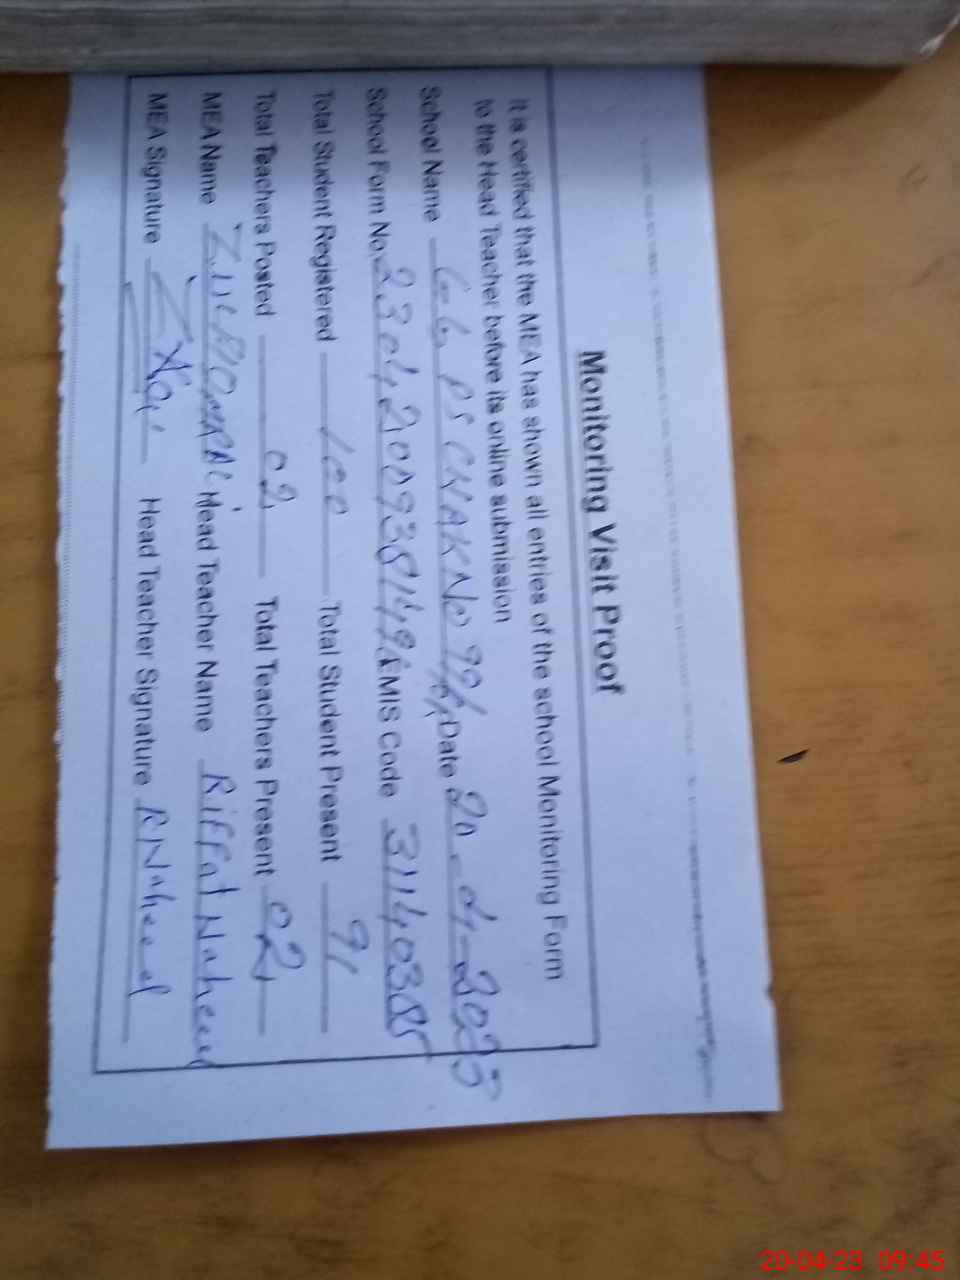 Monitoring Visit Proof
It is certified that the MEA has shown all entries of the school Monitoring Form
to the Head Teacher before its online submission
School Name PS CHAK No 99/ Date 20-04-2023
School Form No. EMIS Code 31140385
Total Student Registered 100 Total Student Present 91
Total Teachers Posted 02 Total Teachers Present 02
MEA Name Head Teacher Name Riffat Naheed
MEA Signature Head Teacher Signature RNaheed
20-04-23 09:45